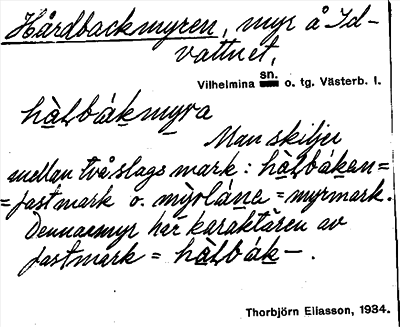 Hårdbackmyren, myr å Id-
vattnet,
Vilhelmina sn. o. tg. Västerb. l.
hàḷbákmyra
Man skiljer
mellan två slags mark: hàḷbákan =
= fast mark o. mỳrlána = myrmark.
Denna myr har karaktären av
fastmark = hàḷbák-.
Thorbjörn Eliasson, 1934.